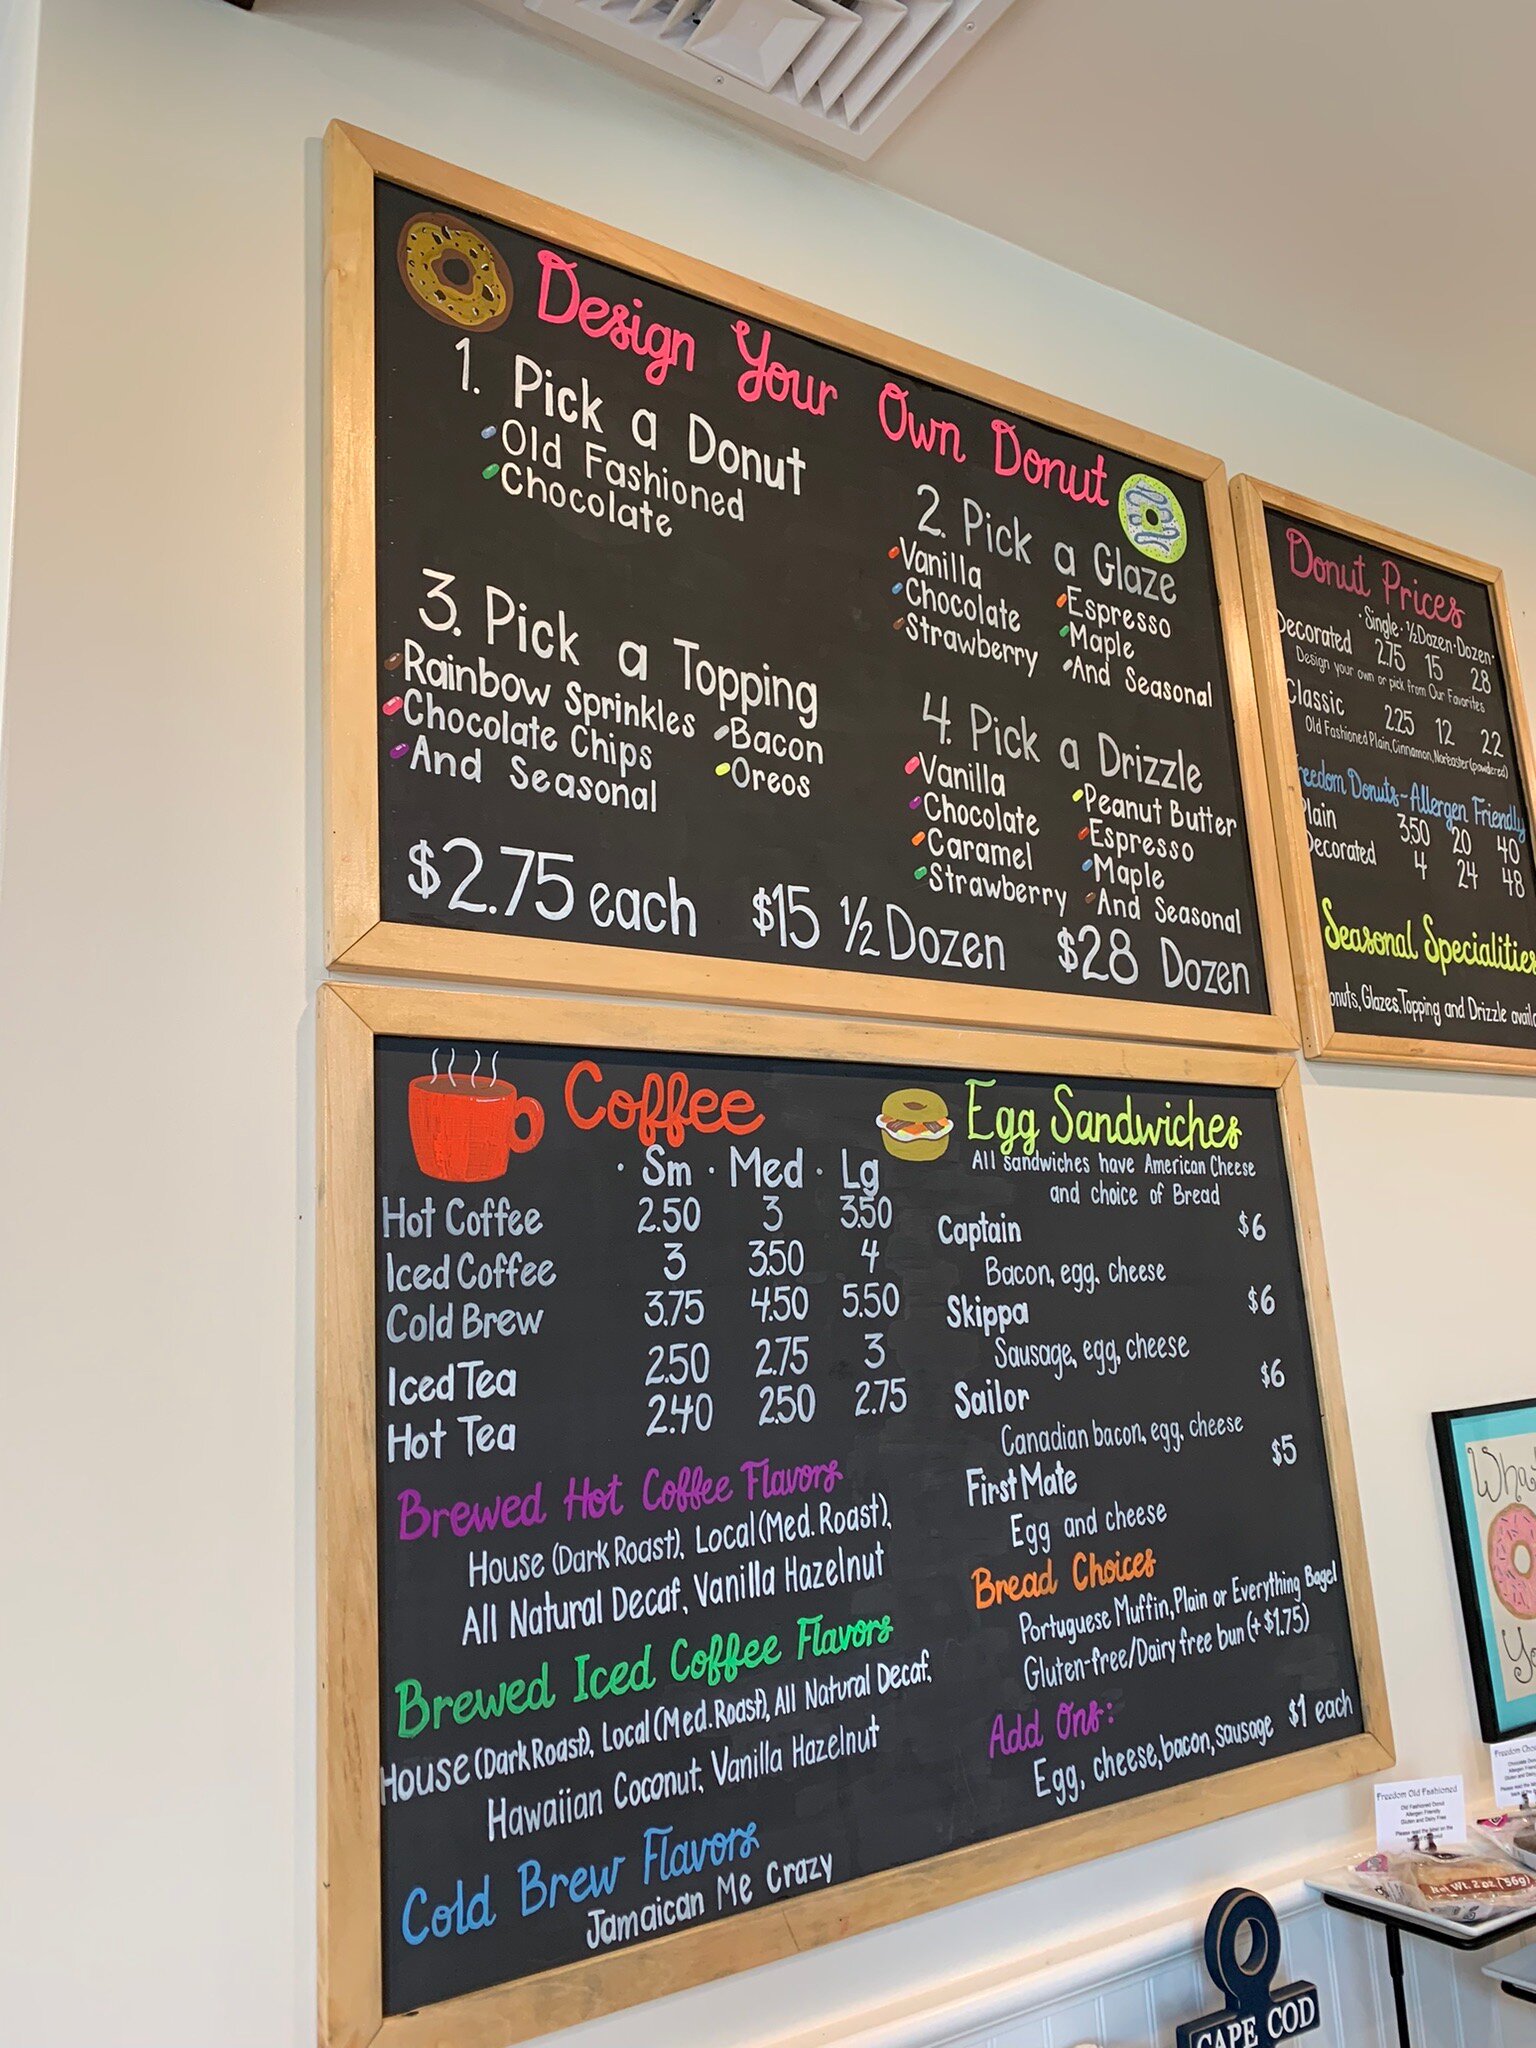 Design Your Own Donut
1. Pick a Donut
Old Fashioned
Chocolate
2. Pick a Glaze
Vanilla
Chocolate
Strawberry
Espresso
Maple
And Seasonal
3. Pick a Topping
Rainbow Sprinkles
Chocolate Chips
And Seasonal
Bacon
Oreos
4. Pick a Drizzle
Vanilla
Chocolate
Caramel
Strawberry
Peanut Butter
Espresso
Maple
And Seasonal
$2.75 each $15 ½ Dozen $28 Dozen
Donut Prices
· Single · ½ Dozen · Dozen ·
Decorated 2.75 15 28
Design your own or pick from Our Favorites
Classic 2.25 12 22
Old Fashioned Plain, Cinnamon, Nor'easter (powdered)
eedom Donuts - Allergen Friendly
Plain 3.50 20 40
Decorated 4 24 48
Seasonal Specialities
onuts, Glazes, Topping and Drizzle avail
Coffee
· Sm · Med · Lg
Hot Coffee 2.50 3 3.50
Iced Coffee 3 3.50 4
Cold Brew 3.75 4.50 5.50
Iced Tea 2.50 2.75 3
Hot Tea 2.40 2.50 2.75
Brewed Hot Coffee Flavors
House (Dark Roast), Local (Med. Roast),
All Natural Decaf, Vanilla Hazelnut
Brewed Iced Coffee Flavors
House (Dark Roast), Local (Med. Roast), All Natural Decaf,
Hawaiian Coconut, Vanilla Hazelnut
Cold Brew Flavors
Jamaican Me Crazy
Egg Sandwiches
All sandwiches have American Cheese
and choice of Bread
Captain $6
Bacon, egg, cheese
Skippa $6
Sausage, egg, cheese
Sailor $6
Canadian bacon, egg, cheese
First Mate $5
Egg and cheese
Bread Choices
Portuguese Muffin, Plain or Everything Bagel
Gluten-free/Dairy free bun (+$1.75)
Add Ons:
Egg, cheese, bacon, sausage $1 each
Freedom Old Fashioned
Old Fashioned Donut
Allergen Friendly
Gluten and Dairy Free
Please read the label on the
Net Wt. 2 oz. (56g)
CAPE COD